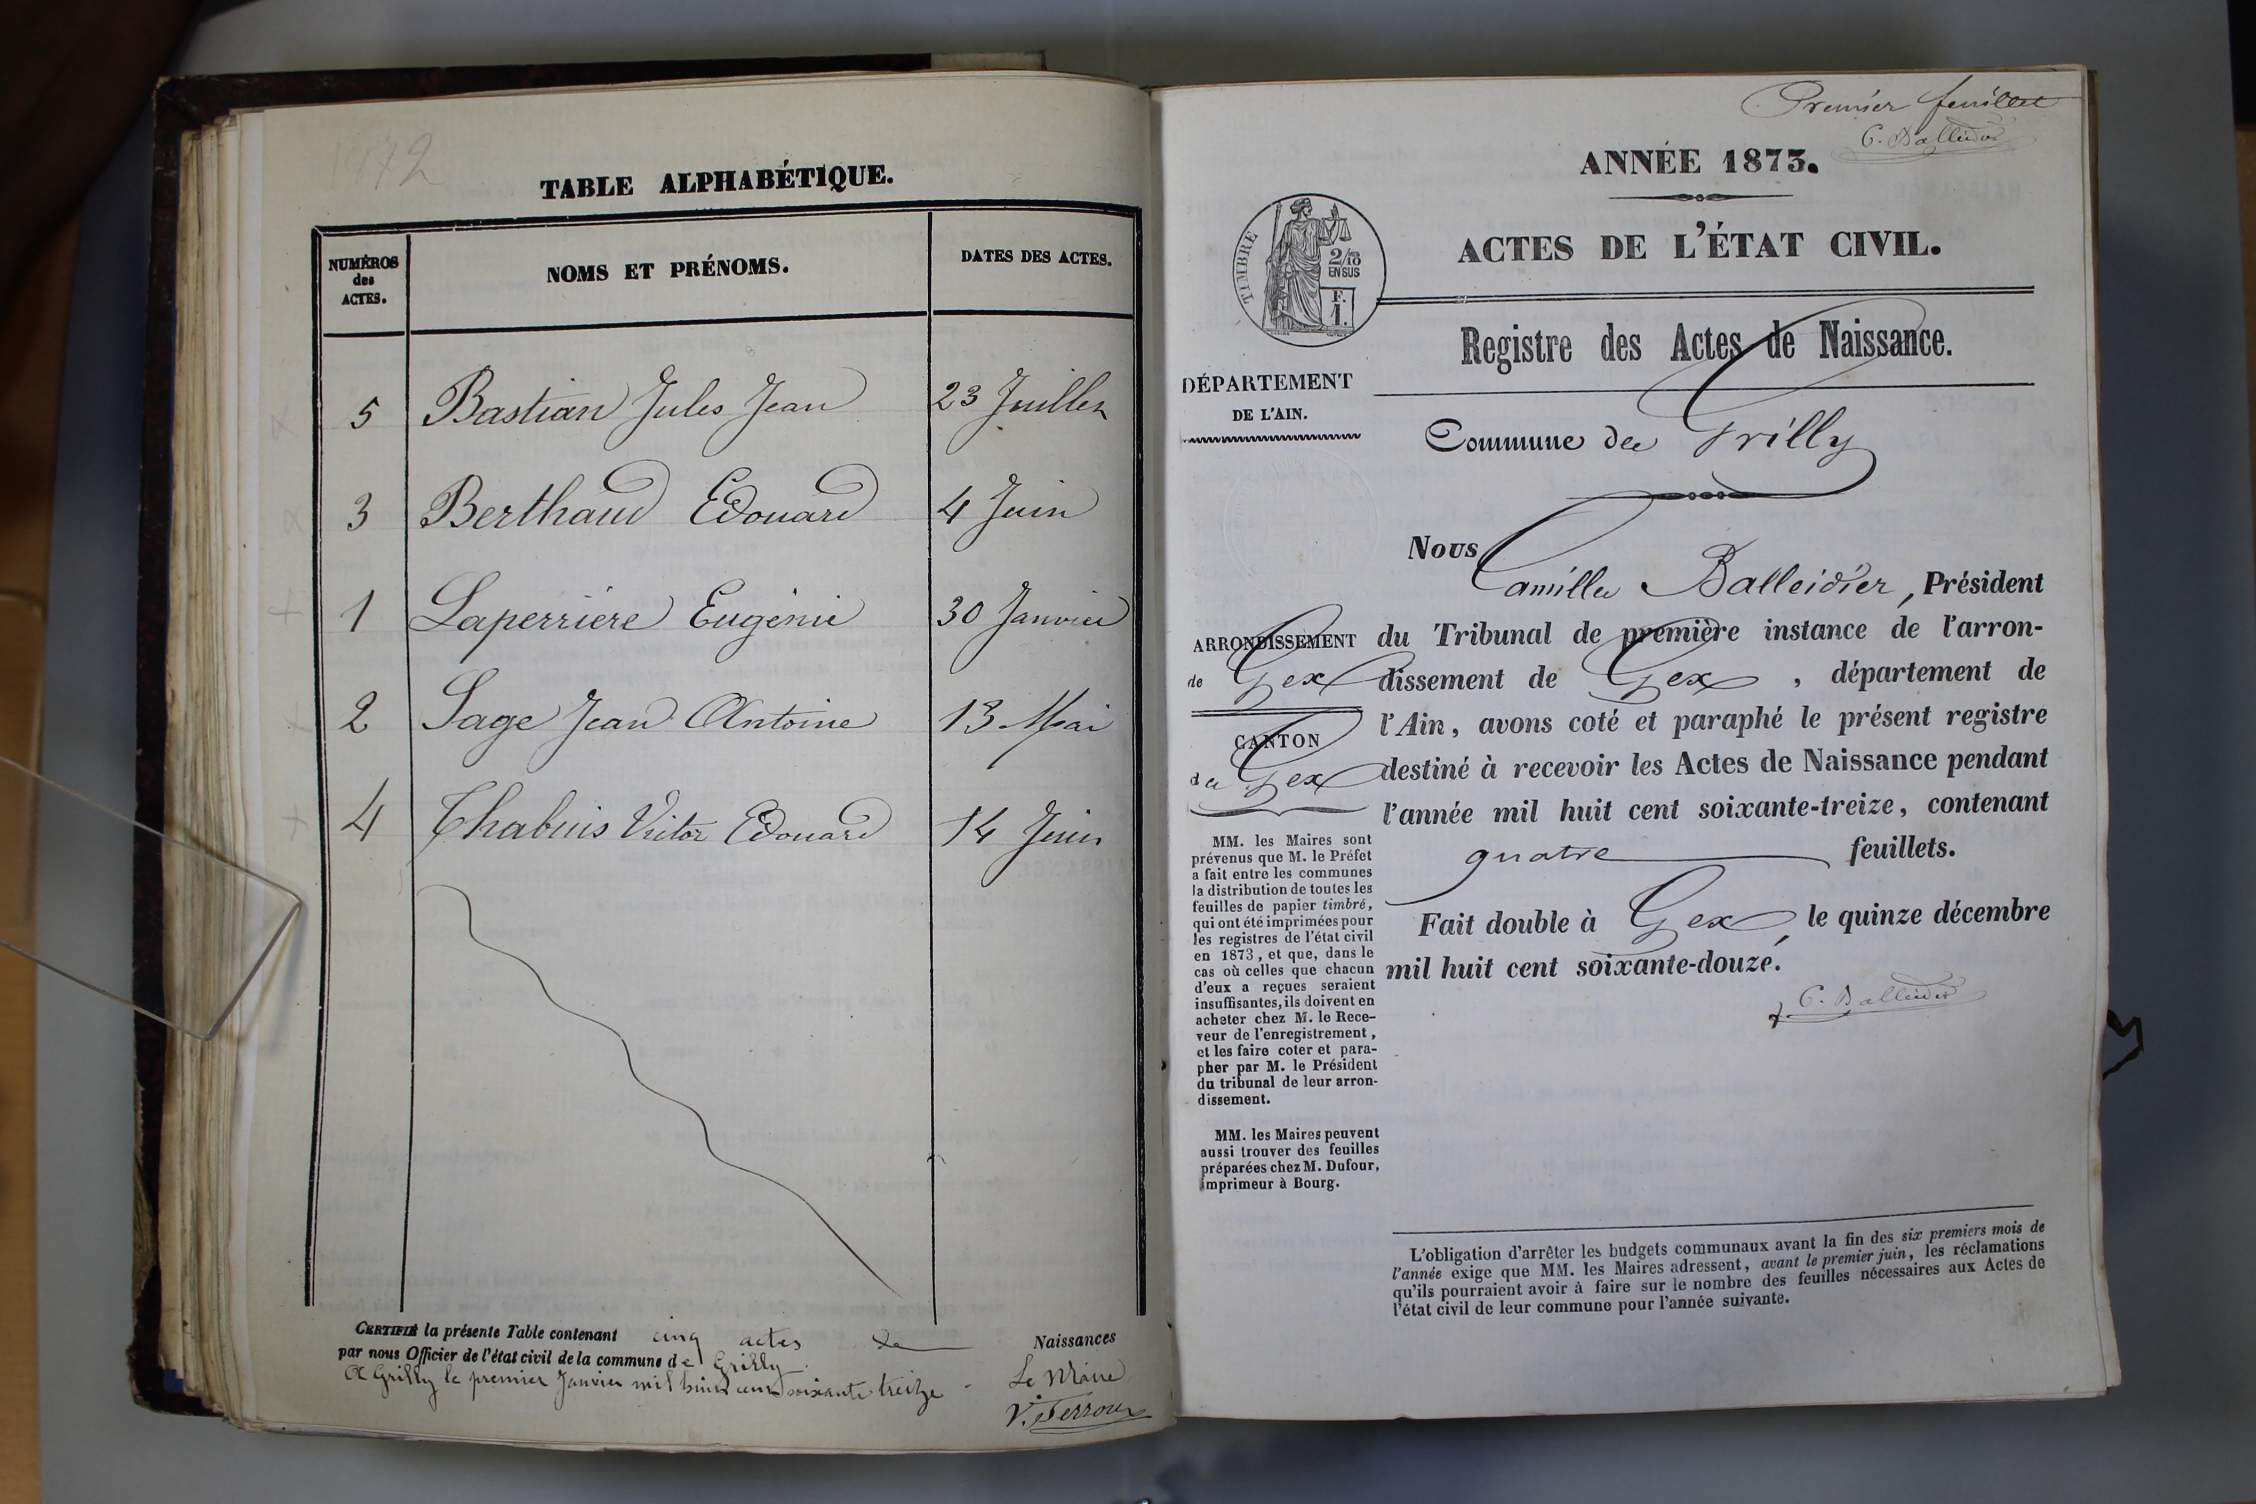 1872
TABLE ALPHABÉTIQUE.
NUMÉROS
des
ACTES.
NOMS ET PRÉNOMS.
DATES DES ACTES.
5 Bastian Jules Jean 23 Juillet
3 Berthaud Edouard 4 Juin
1 Laperrière Eugénie 30 Janvier
2 Sage Jean Antoine 13 Mai
4 Thabuis Victor Edouard 14 Juin
CERTIFIÉ la présente Table contenant cinq actes de Naissances
par nous Officier de l'état civil de la commune de Grilly.
A Grilly le premier Janvier mil huit cent soixante treize
Le Maire
V. Perroux
Premier feuillet
C. Balleidier
ANNÉE 1873.
ACTES DE L'ÉTAT CIVIL.
TIMBRE
2/10
EN SUS
F.
1.
Registre des Actes de Naissance.
DÉPARTEMENT
DE L'AIN.
Commune de Grilly
Nous
Camille Balleidier, Président
du Tribunal de première instance de l'arron-
dissement de Gex, département de
l'Ain, avons coté et paraphé le présent registre
destiné à recevoir les Actes de Naissance pendant
l'année mil huit cent soixante-treize, contenant
quatre feuillets.
Fait double à Gex, le quinze décembre
mil huit cent soixante-douze.
C. Balleidier
ARRONDISSEMENT
de Gex
CANTON
de Gex
MM. les Maires sont
prévenus que M. le Préfet
a fait entre les communes
la distribution de toutes les
feuilles de papier timbré,
qui ont été imprimées pour
les registres de l'état civil
en 1873, et que, dans le
cas où celles que chacun
d'eux a reçues seraient
insuffisantes, ils doivent en
acheter chez M. le Rece-
veur de l'enregistrement,
et les faire coter et para-
pher par M. le Président
du tribunal de leur arron-
dissement.
MM. les Maires peuvent
aussi trouver des feuilles
préparées chez M. Dufour,
imprimeur à Bourg.
L'obligation d'arrêter les budgets communaux avant la fin des six premiers mois de
l'année exige que MM. les Maires adressent, avant le premier juin, les réclamations
qu'ils pourraient avoir à faire sur le nombre des feuilles nécessaires aux Actes de
l'état civil de leur commune pour l'année suivante.